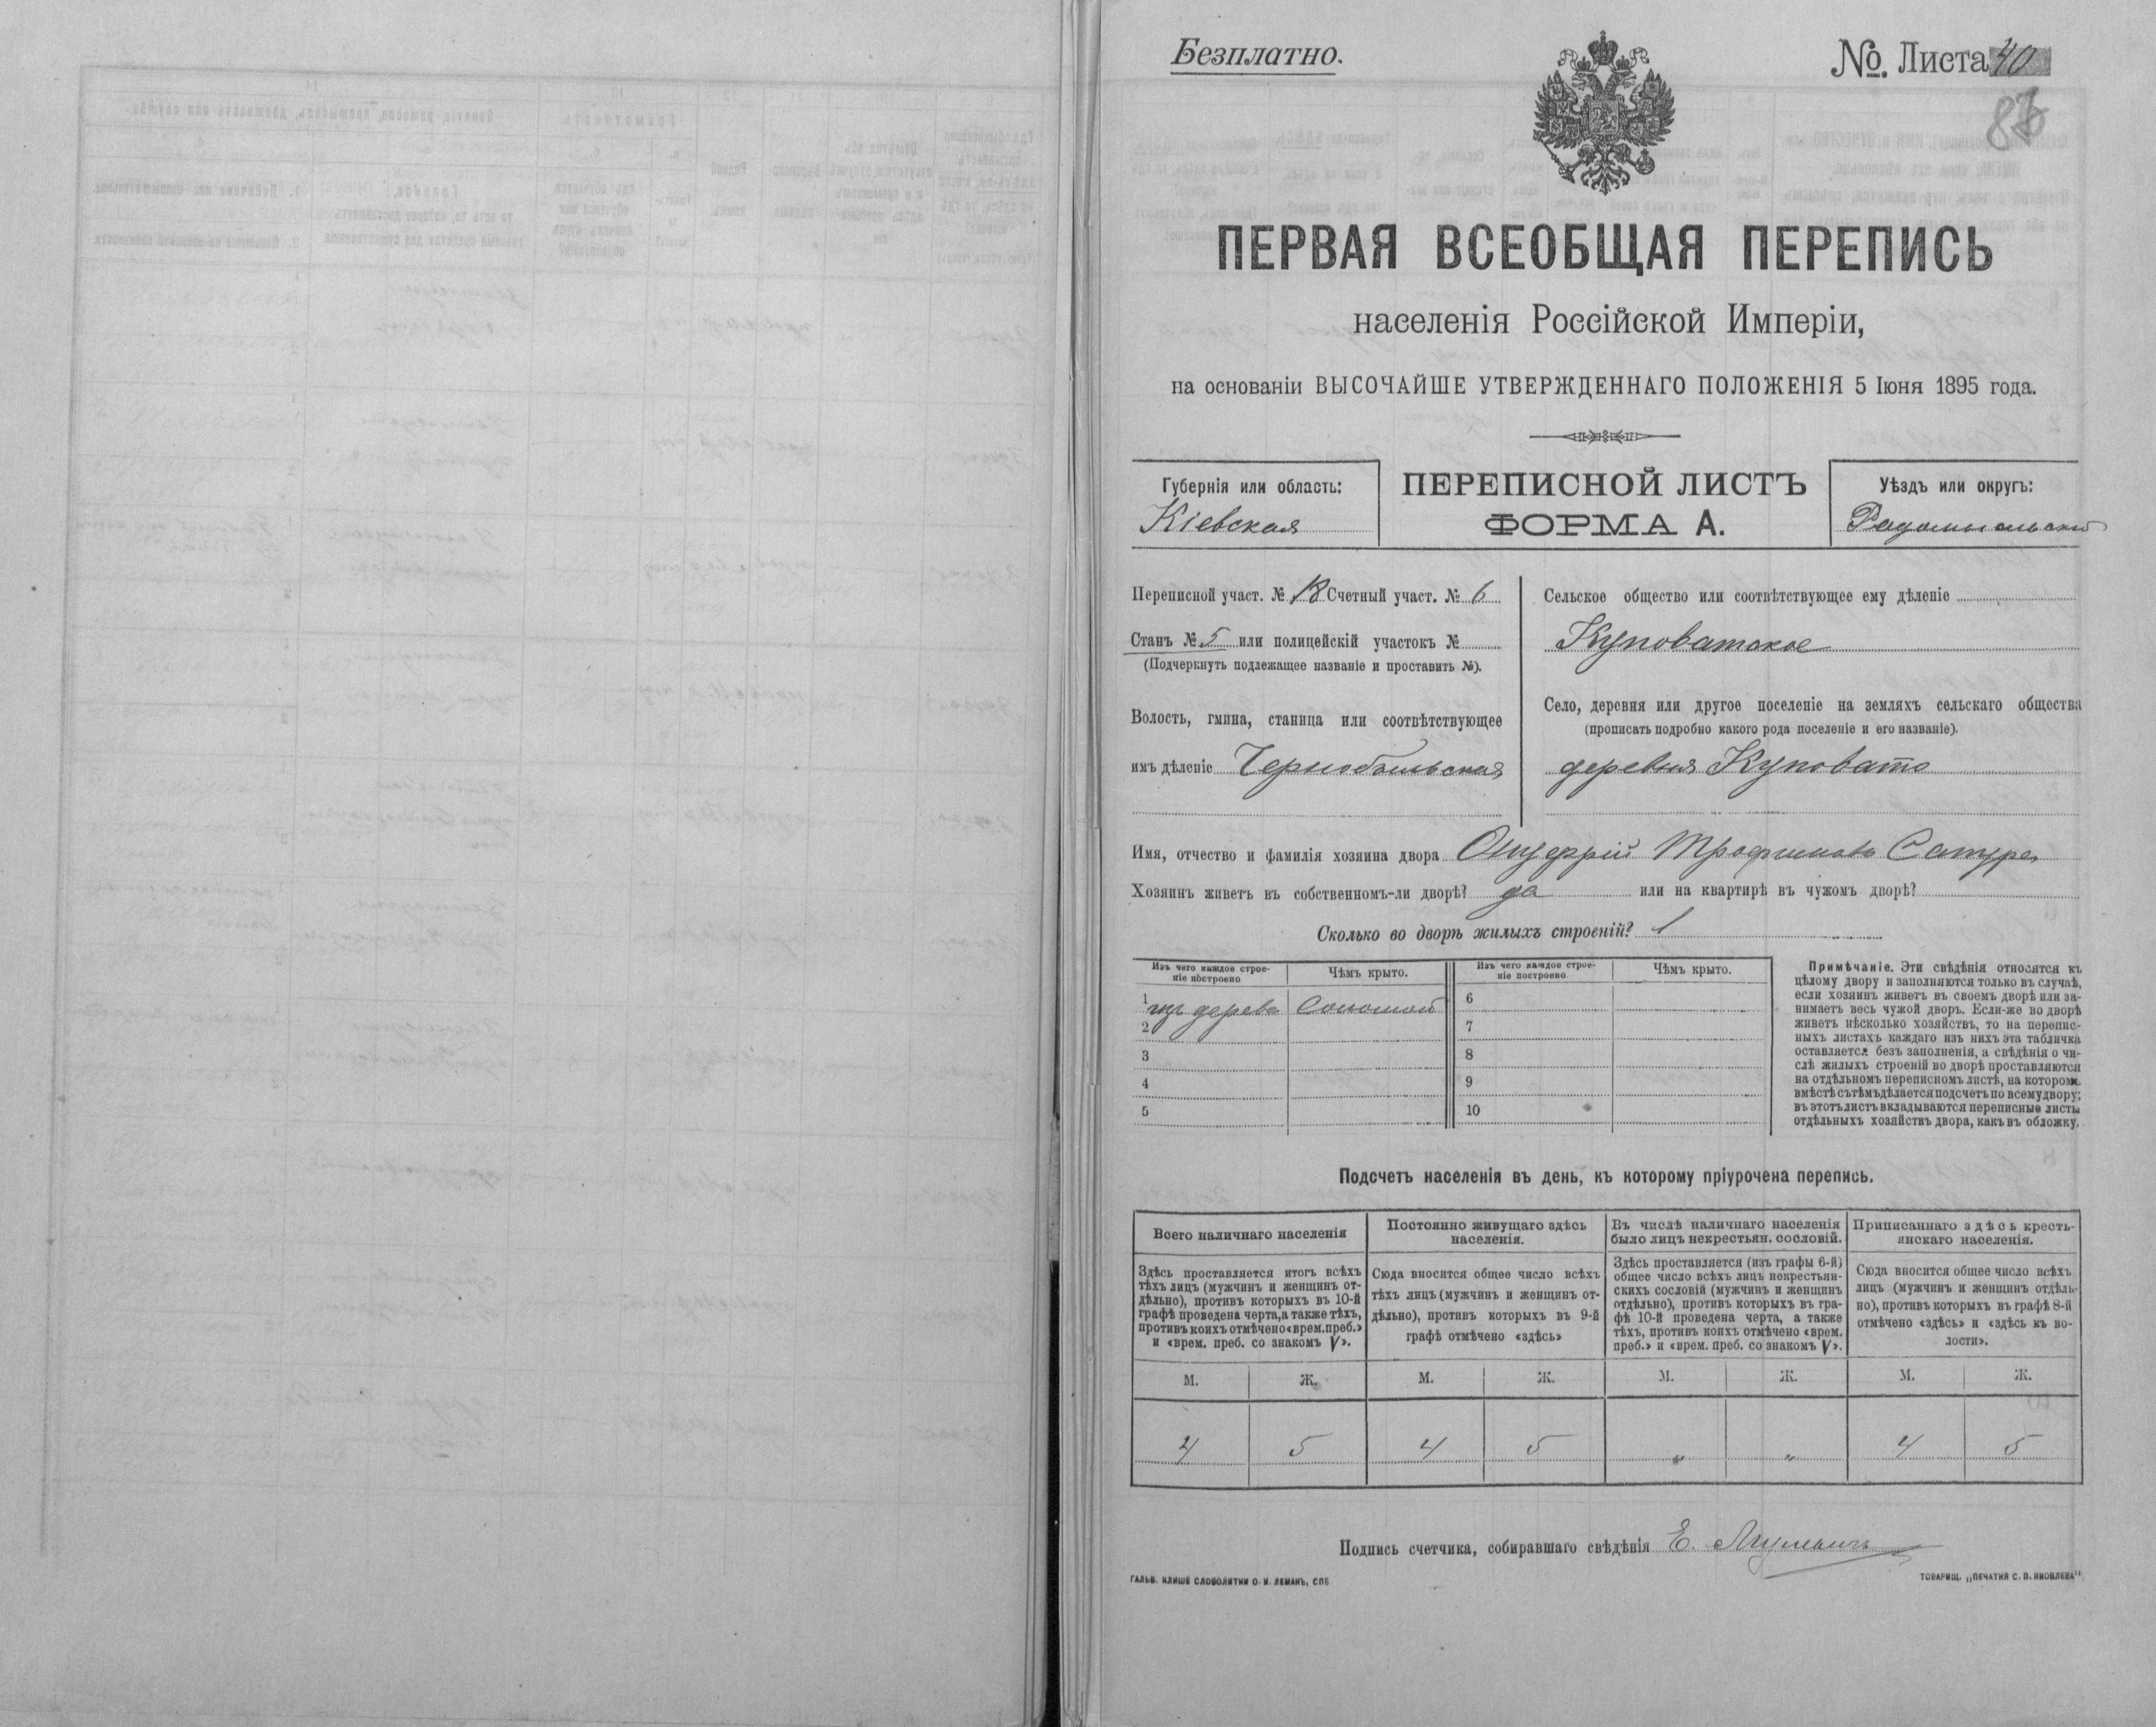 Безплатно.
№ Листа 40
ПЕРВАЯ ВСЕОБЩАЯ ПЕРЕПИСЬ
населенія Россійской Имперіи,
на основаніи ВЫСОЧАЙШЕ УТВЕРЖДЕННАГО ПОЛОЖЕНІЯ 5 Іюня 1895 года.
Губернія или область:
Кіевская
ПЕРЕПИСНОЙ ЛИСТЪ
ФОРМА А.
Уѣздъ или округъ:
Радомысльскій
Переписной участ. № 18 Счетный участ. № 6
Станъ № 5 или полицейскій участокъ №
(Подчеркнуть подлежащее названіе и проставить №).
Волость, гмина, станица или соотвѣтствующее
имъ дѣленіе Чернобыльская
Сельское общество или соотвѣтствующее ему дѣленіе
Куповатское
Село, деревня или другое поселеніе на земляхъ сельскаго общества
(прописать подробно какого рода поселеніе и его названіе).
деревня Куповато
Имя, отчество и фамилія хозяина двора Трофимовъ
Хозяинъ живетъ въ собственномъ-ли дворѣ? да или на квартирѣ въ чужомъ дворѣ?
Сколько во дворѣ жилыхъ строеній? 1
Изъ чего каждое строе-
ніе построено
Чѣмъ крыто.
Изъ чего каждое строе-
ніе построено
Чѣмъ крыто.
1 изъ дерева Соломой
2
3
4
5
6
7
8
9
10
Примѣчаніе. Эти свѣдѣнія относятся къ
цѣлому двору и заполняются только въ случаѣ,
если хозяинъ живетъ въ своемъ дворѣ или за-
нимаетъ весь чужой дворъ. Если-же во дворѣ
живетъ нѣсколько хозяйствъ, то на перепис-
ныхъ листахъ каждаго изъ нихъ эта табличка
оставляется безъ заполненія, а свѣдѣнія о чи-
слѣ жилыхъ строеній во дворѣ проставляются
на отдѣльномъ переписномъ листѣ, на которомъ
вмѣстѣ съ тѣмъ дѣлается подсчетъ по всему двору;
въ этотъ листъ вкладываются переписные листы
отдѣльныхъ хозяйствъ двора, какъ въ обложку.
Подсчетъ населенія въ день, къ которому пріурочена перепись.
Всего наличнаго населенія
Здѣсь проставляется итогъ всѣхъ
тѣхъ лицъ (мужчинъ и женщинъ от-
дѣльно), противъ которыхъ въ 10-й
графѣ проведена черта, а также тѣхъ,
противъ коихъ отмѣчено «врем. преб.»
и «врем. преб. со знакомъ V».
Постоянно живущаго здѣсь
населенія.
Сюда вносится общее число всѣхъ
тѣхъ лицъ (мужчинъ и женщинъ от-
дѣльно), противъ которыхъ въ 9-й
графѣ отмѣчено «здѣсь»
Въ числѣ наличнаго населенія
было лицъ некрестьян. сословій.
Здѣсь проставляется (изъ графы 6-й)
общее число всѣхъ лицъ некрестьян-
скихъ сословій (мужчинъ и женщинъ
отдѣльно), противъ которыхъ въ гра-
фѣ 10-й проведена черта, а также
тѣхъ, противъ коихъ отмѣчено «врем.
преб.» и «врем. преб. со знакомъ V».
Приписаннаго здѣсь кресть-
янскаго населенія.
Сюда вносится общее число всѣхъ
лицъ (мужчинъ и женщинъ отдѣль-
но), противъ которыхъ въ графѣ 8-й
отмѣчено «здѣсь» и «здѣсь къ во-
лости».
М. Ж. М. Ж. М. Ж. М. Ж.
4 5 4 5 „ „ 4 5
Подпись счетчика, собиравшаго свѣдѣнія Е.
ГАЛЬВ. КЛИШЕ СЛОВОЛИТНИ О. И. ЛЕМАНЪ, СПБ
ТОВАРИЩ. „ПЕЧАТНИ С. П. ЯКОВЛЕВА“